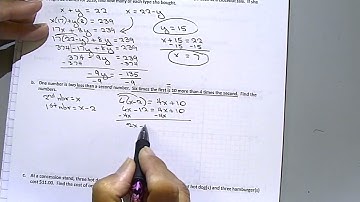 find how many of each type she bought.
x + y = 22
x = 22-y
x(17)+y(8) = 239
17x + 8y = 239
17(22-y)+8y = 239
374-17y+8y = 239
374 -9y = 239
-374 -374
-9y = -135
-9 -9
y = 15
x+15 = 22
-15 -15
x = 7
b. One number is two less than a second number. Six times the first is 10 more than 4 times the second. Find the
numbers.
2nd nbr = x
1st nbr = x-2
6(x-2) = 4x+10
6x-12 = 4x+10
-4x -4x
2x
c. At a concession stand, three hot do
hot dog(s) and three hamburger(s)
cost $11.00. Find the cost of on